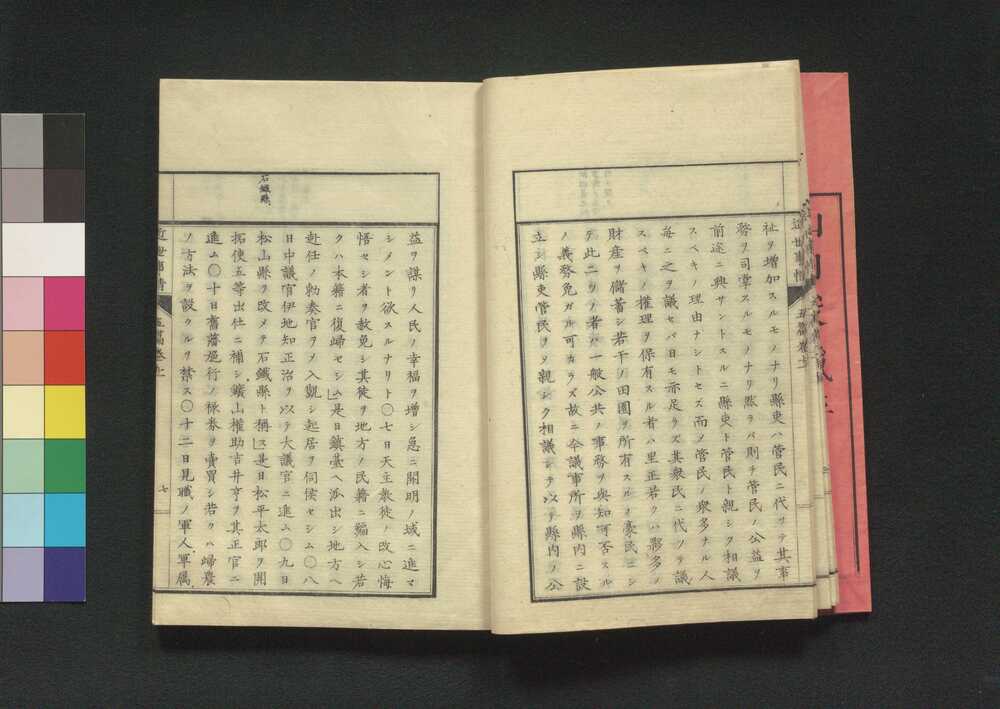 祉ヲ増加スルモノナリ縣吏ハ管民ニ代ツテ其事
務ヲ司掌スルモノナリ然ラバ則チ管民ノ公益ヲ
前途ニ興サントスルニ縣吏ト管民ト親シク相議
スベキノ理由ナシトセズ而ノ管民ノ衆多ナル人
毎ニ之ヲ議セバ日モ亦足ラズ其衆民ニ代ノテ議
スベキノ權理ヲ保有スル者ハ里正若クハ夥多ノ
財産ヲ儲蓄シ若干ノ田圃ヲ所有スル豪民ニシ
テ此ニツノ者ハ一般公共ノ事務ヲ與知可否スル
ノ義務免ガル可カラズ故ニ今議事所ヲ縣内ニ設
立シ縣吏管民ヲノ親シク相議シテ以テ縣内ノ公
近世事情
五篇卷上
石鐵縣
益ヲ謀リ人民ノ幸福ヲ増シ急ニ開明ノ域ニ進マ
シメント欲スルナリト〇七日天主教徒ノ改心悔
悟セシ者ヲ赦免シ其徒ヲ地方ノ民籍ニ編入シ若
クハ本籍ニ復歸セシム是日鎮臺ヘ派出シ地方ヘ
赴任ノ勅奏官ヲノ入覲シ起居ヲ伺候セシム〇八
日中議官伊地知正治ヲ以テ大議官ニ進ム〇九日
松山縣ヲ改メテ石鐵縣ト稱ス是日松平太郎ヲ開
拓使五等出仕ニ補シ鑛山權助吉井亨ヲ其正官ニ
進ム〇十日舊藩施行ノ祿券ヲ賣買シ若クハ歸農
ノ方法ヲ設クルヲ禁ス〇十二日見職ノ軍人軍属
近世事情
五篇卷上
七